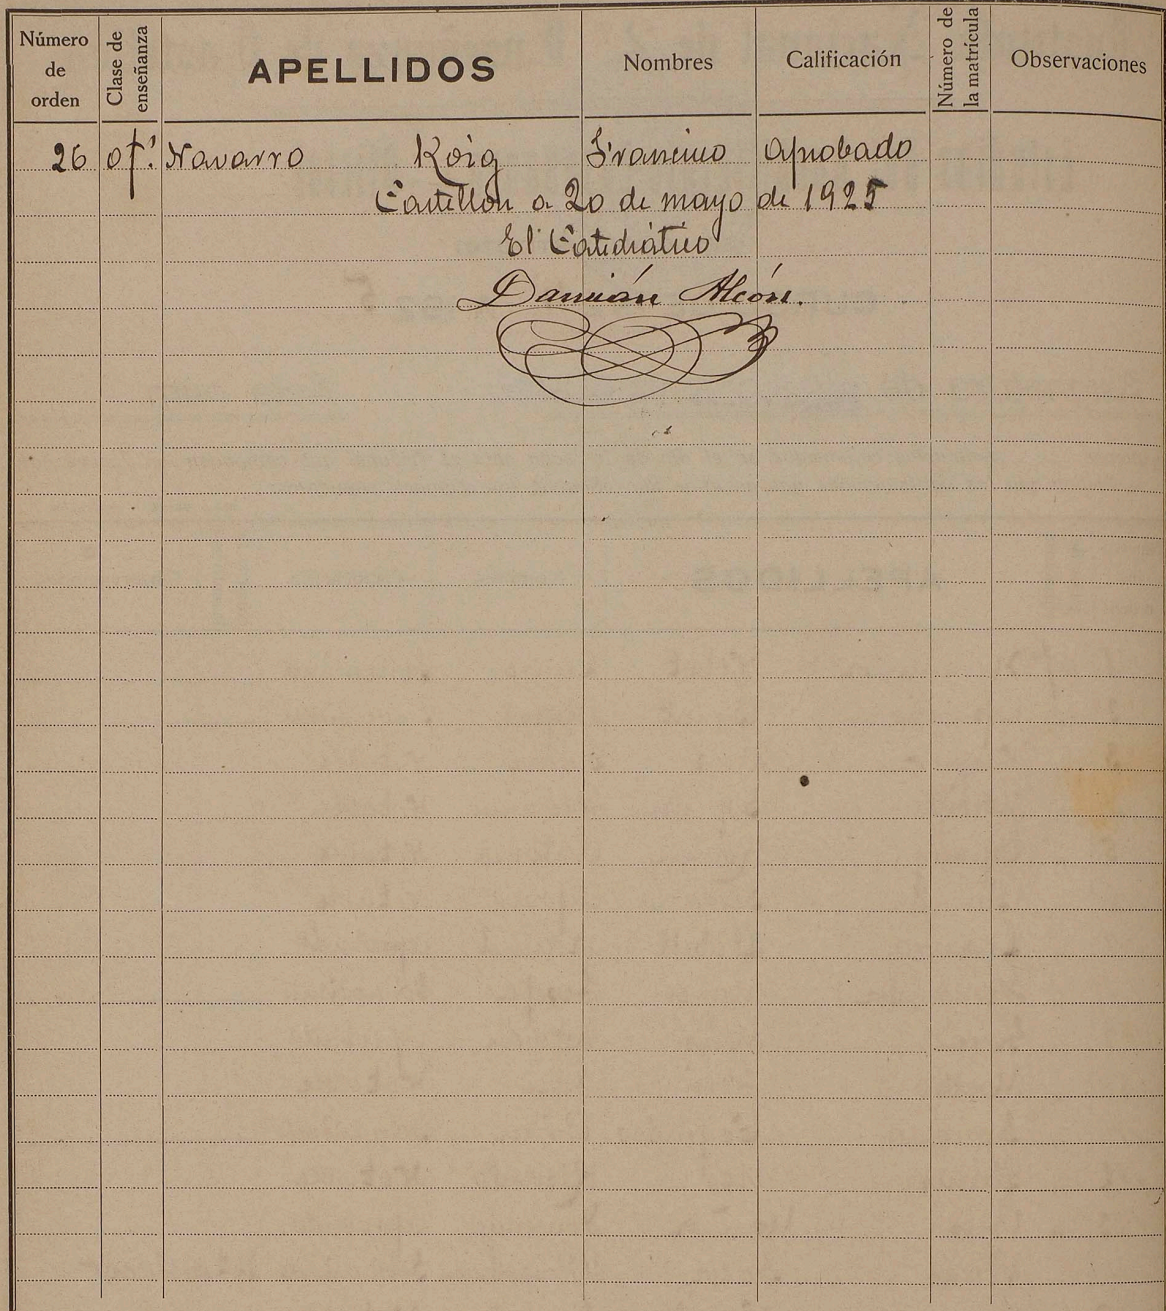 Número de orden Clase de enseñanza APELLIDOS Nombres Calificación Número de la matrícula Observaciones
26 of.l Navarro Roig Francisco Aprobado
Castellón a 20 de mayo de 1925
El Catedrático
Damián Alcón.